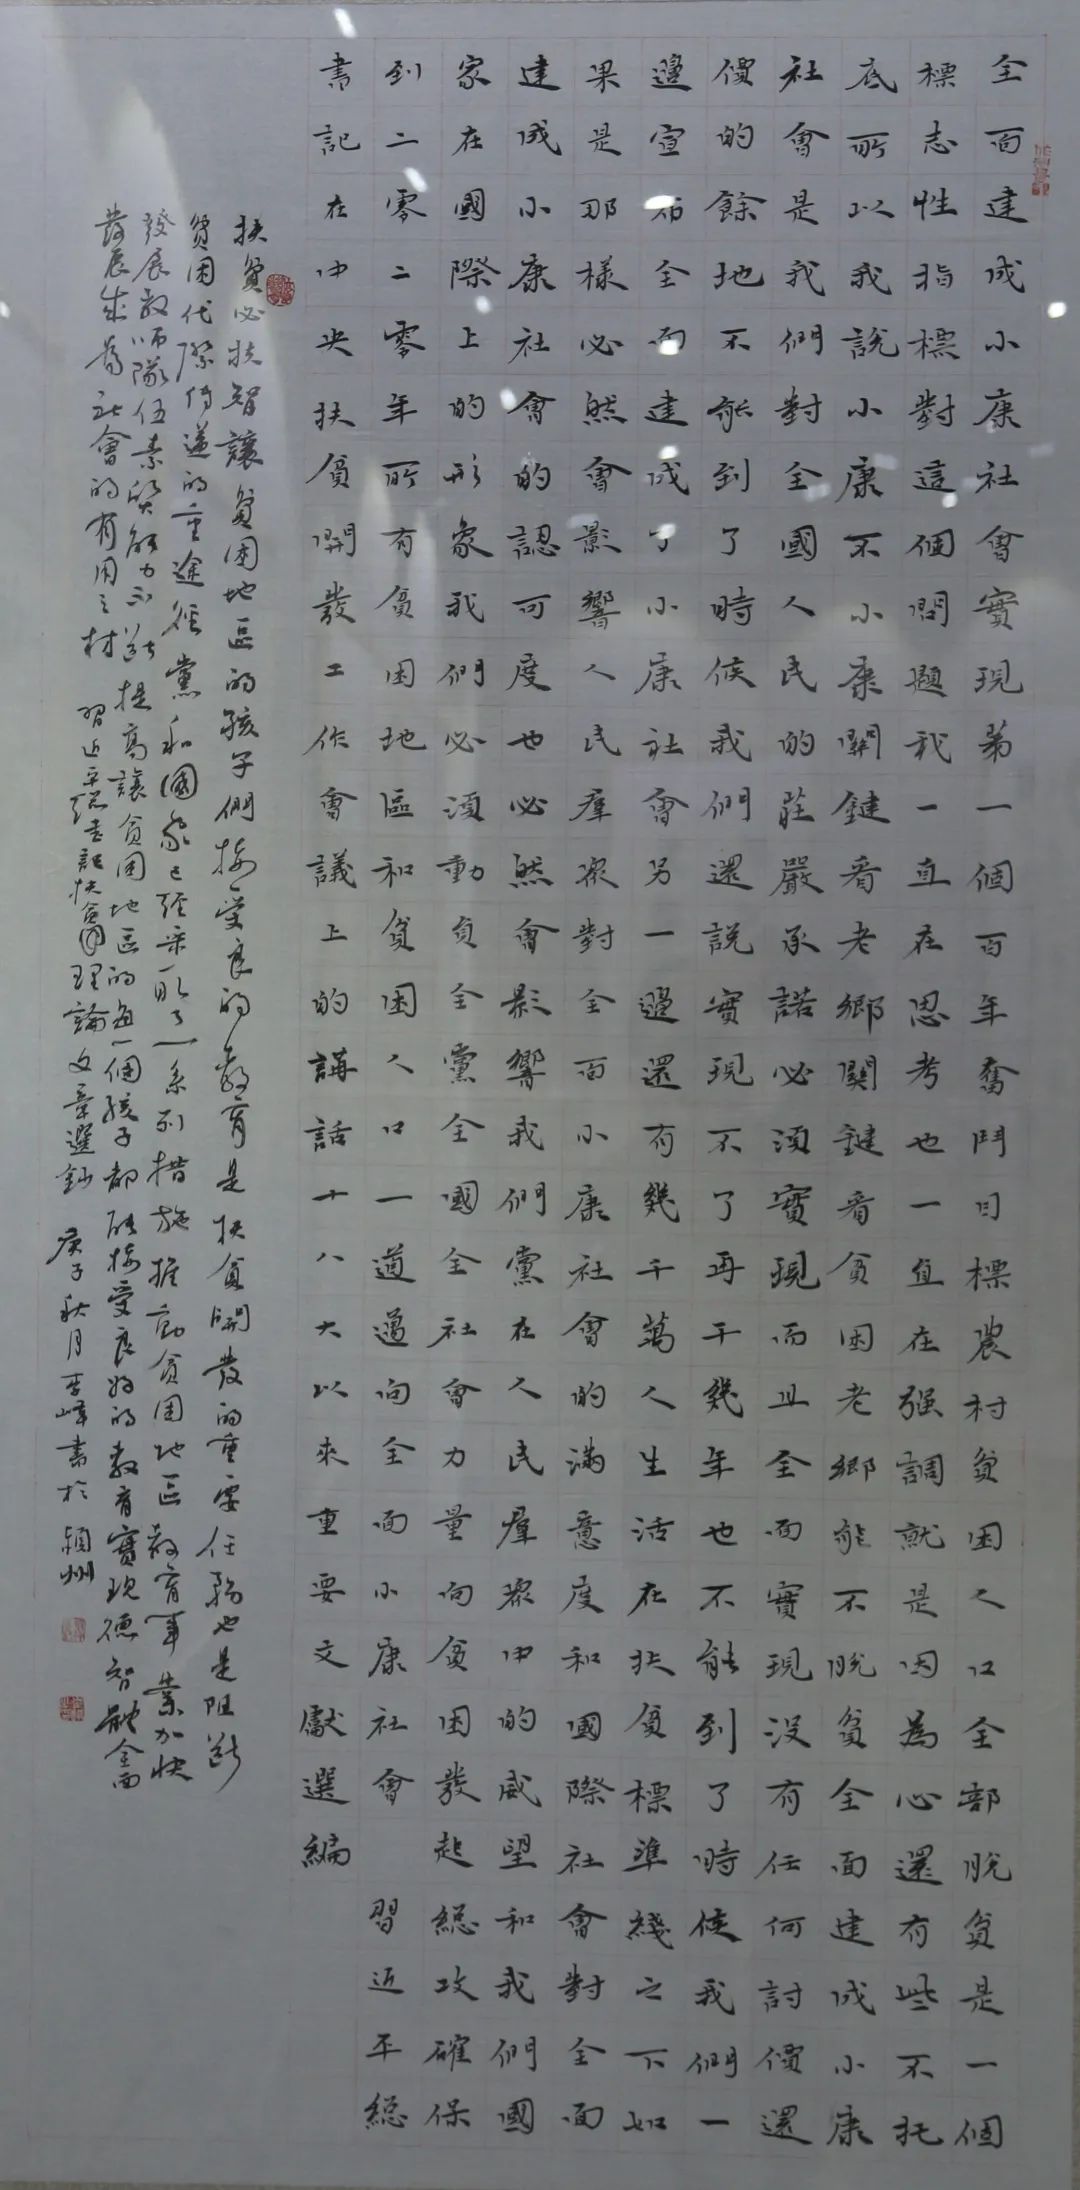 全面建成小康社會實現第一個百年奮鬥目標農村貧困人口全部脫貧是一個
標志性指標對這個問題我一直在思考也一直在强調就是因為心還有些不托
底所以我說小康不小康關鍵看老鄉關鍵看貧困老鄉能不脫貧全面建成小康
社會是我們對全國人民的莊嚴承諾必須實現而且全面實現没有任何討價還
價的餘地不能到了時候我們還說實現不了再干幾年也不能到了時候我們一
邊宣布全面建成了小康社會另一邊還有幾千萬人生活在扶貧標準綫之下如
果是那樣必然會影響人民羣衆對全面小康社會的滿意度和國際社會對全面
建成小康社會的認可度也必然會影響我們黨在人民羣衆中的威望和我們國
家在國際上的形象我們必須動員全黨全國全社會力量向貧困發起總攻確保
到二零二零年所有貧困地區和貧困人口一道邁向全面小康社會 習近平總
書記在中央扶貧開發工作會議上的講話十八大以來重要文獻選編
扶貧必扶智讓貧困地區的孩子們接受良的教育是扶貧開發的重要任務也是阻斷
貧困代際傳遞的重途徑黨和國家已經采取了一系列措施推動貧困地區教育事業加快
發展教師隊伍素質能力不斷提高讓貧困地區的每一個孩子都能接受良好的教育實現德智體全面
發展成為社會的有用之材 習近平總書記扶貧理論文章選鈔 庚子秋月李峰書於潁州